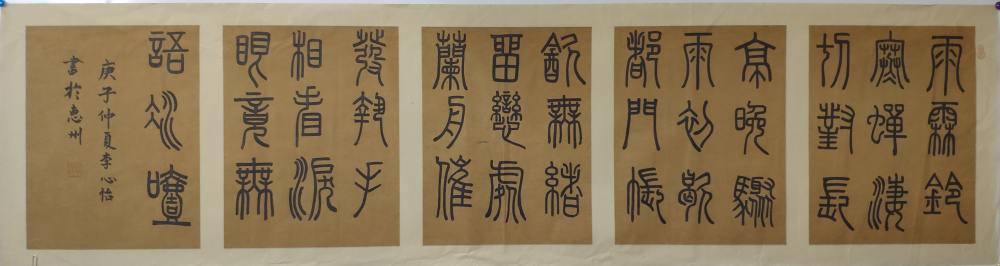 雨霖鈴
寒蟬淒
切對長
亭晚驟
雨初歇
都門帳
飲無緒
留戀處
蘭舟催
發執手
相看淚
眼竟無
語凝噎
庚子仲夏李心怡
書於惠州